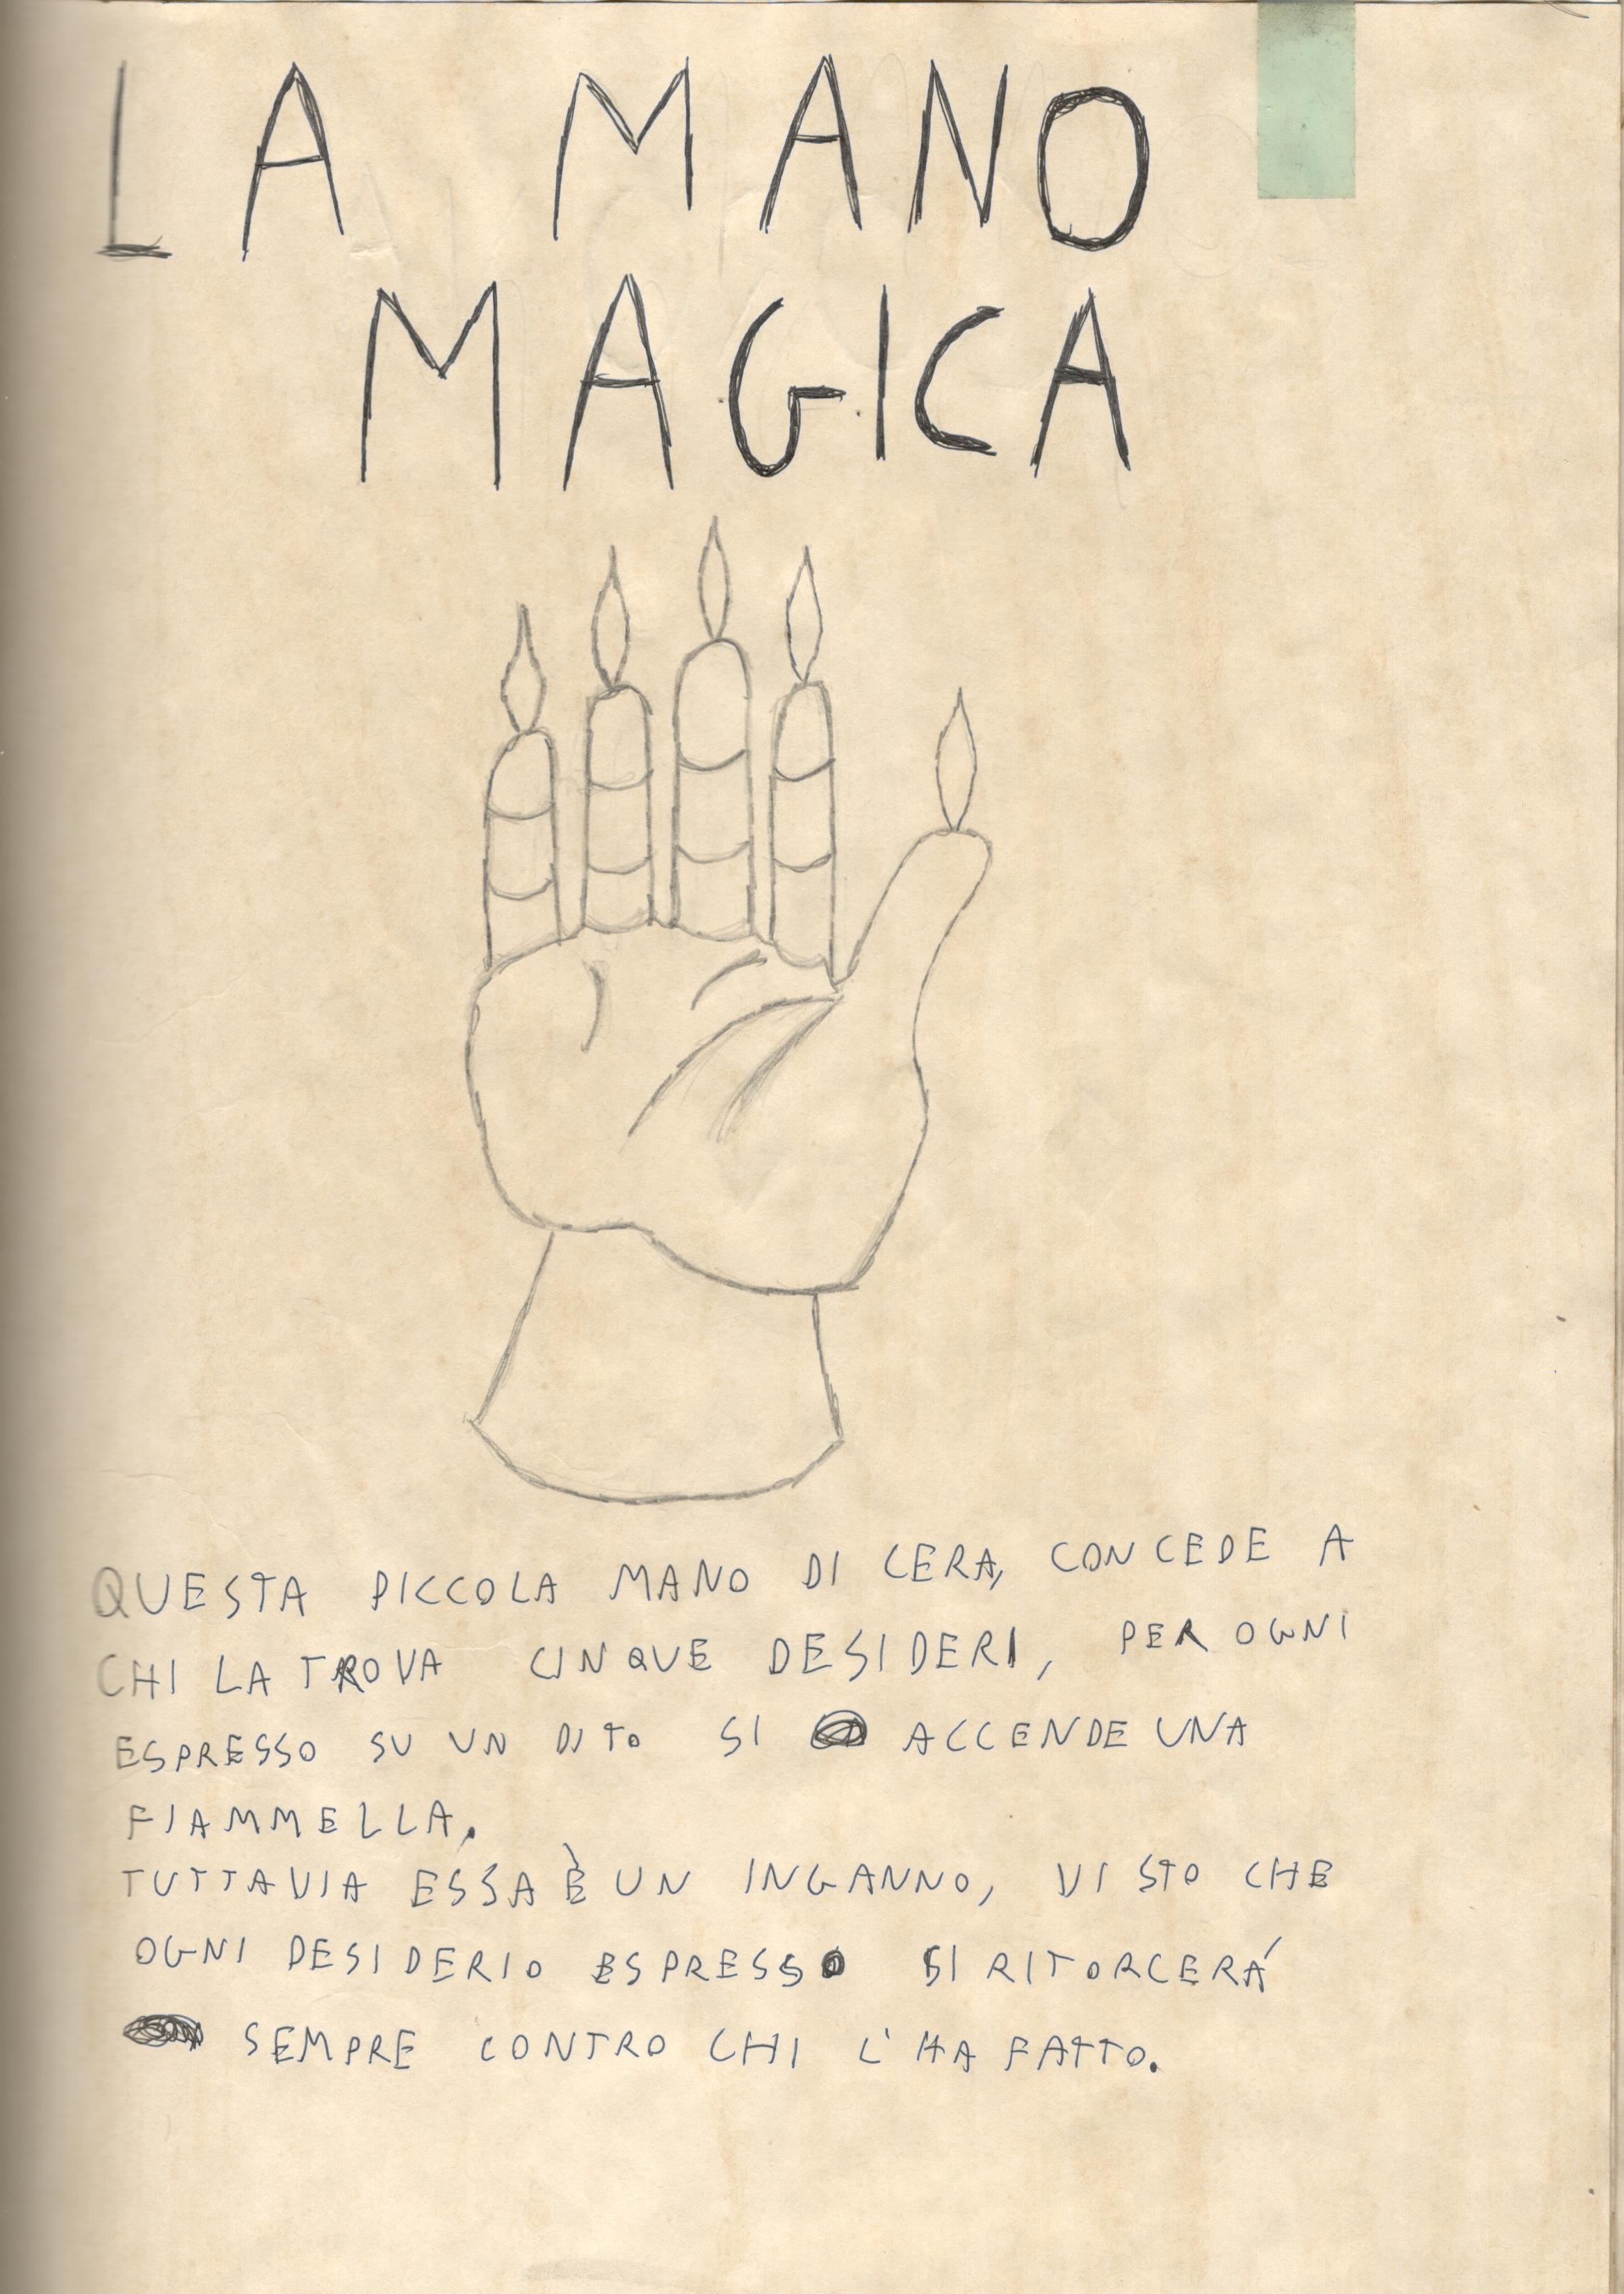 LA MANO
MAGICA
QUESTA PICCOLA MANO DI CERA, CONCEDE A
CHI LA TROVA CINQUE DESIDERI, PER OGNI
ESPRESSO SU UN DITO SI ACCENDE UNA
FIAMMELLA.
TUTTAVIA ESSA È UN INGANNO, VISTO CHE
OGNI DESIDERIO ESPRESSO SI RITORCERÁ
SEMPRE CONTRO CHI L'HA FATTO.